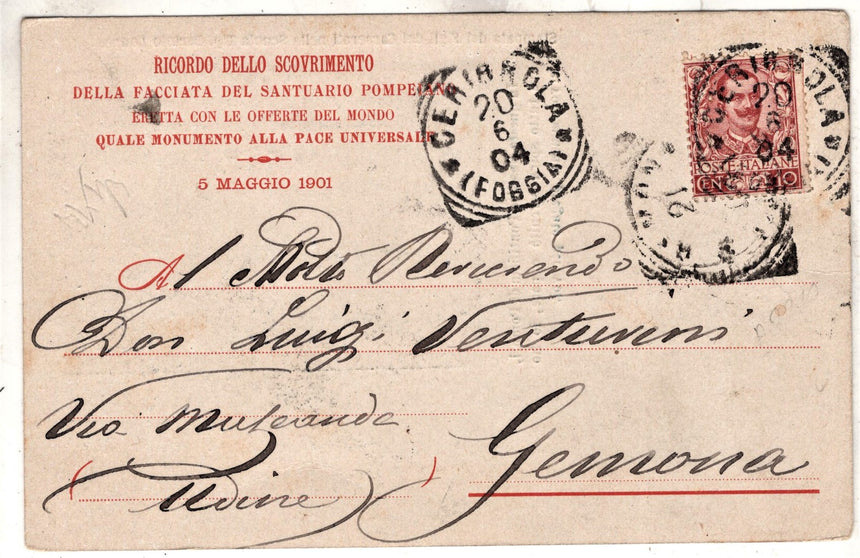 RICORDO DELLO SCOVRIMENTO
DELLA FACCIATA DEL SANTUARIO POMPEIANO
ERETTA CON LE OFFERTE DEL MONDO
QUALE MONUMENTO ALLA PACE UNIVERSALE
5 MAGGIO 1901
CERIGNOLA
20
6
04
(FOGGIA)
CERIGNOLA
20
6
04
POSTE ITALIANE
CENTESIMI 10
21
Al Molto Reverendo
Don Luigi Venturini
Via
Gemona
(Udine)